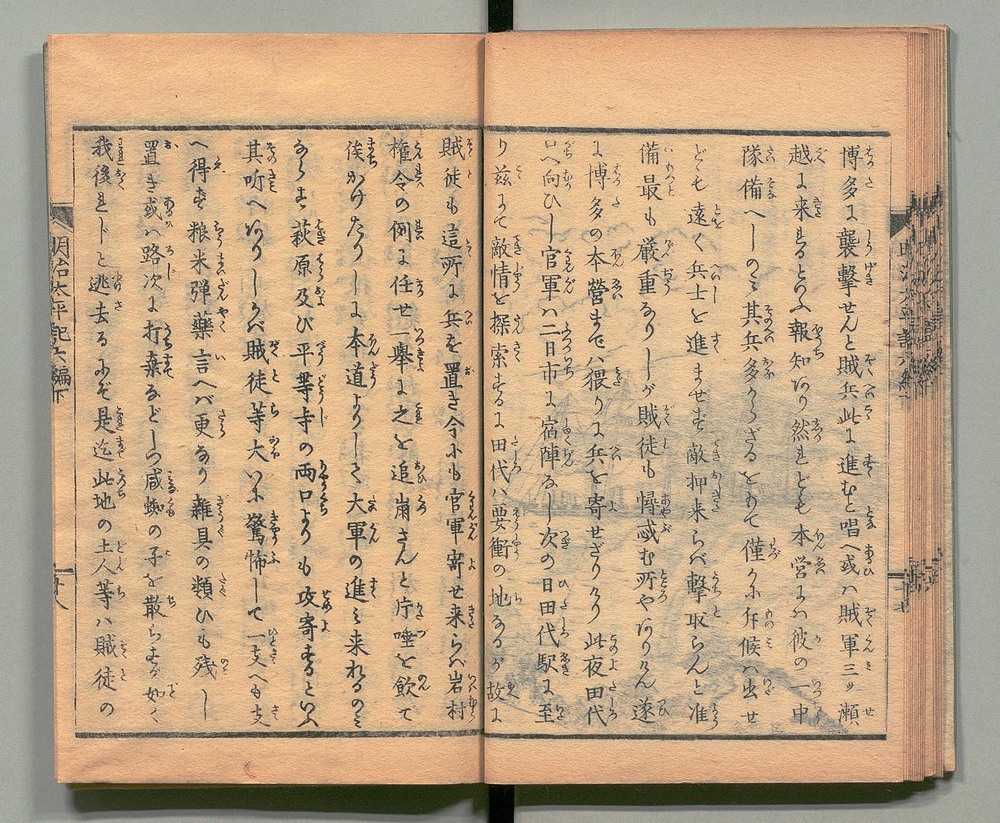 博多に襲撃せんと賊兵此に進むと唱へ或ハ賊軍三ッ瀬
越に来るといふ報知あり然れども本営にハ彼の一中
隊備へしのミ其兵多からざるをもて僅かに斥候ハ出せ
ども遠く兵士を進ませず敵押来らバ撃取らんと准
備最も厳重なりしが賊徒も懼惑む所やありけん遂
に博多の本営までハ猥りに兵を寄せざりけり此夜田代
へ向ひし官軍ハ二日市に宿陣なし次の日田代駅に至
り茲にて敵情を探索するに田代ハ要衝の地なるが故に
賊徒も這所に兵を置き今にも官軍寄せ来らバ岩村
権令の例に任せ一挙に之を追崩さんと片唾を飲て
俟かけたりしに本道よりして大軍の進ミ来れるのミ
ならず萩原及び平等寺の両口よりも攻寄するといふ
其听へありしかバ賊徒等大いに驚怖して一支へも支
へ得ず粮米弾薬言へバ更なり雑具の類ひも残し
置き或ハ路次に打棄るなどしつ蜘の子を散らすが如く
我後れじと逃去るにぞ是迄此地の土人等ハ賊徒の
明治太平記六編下
十八